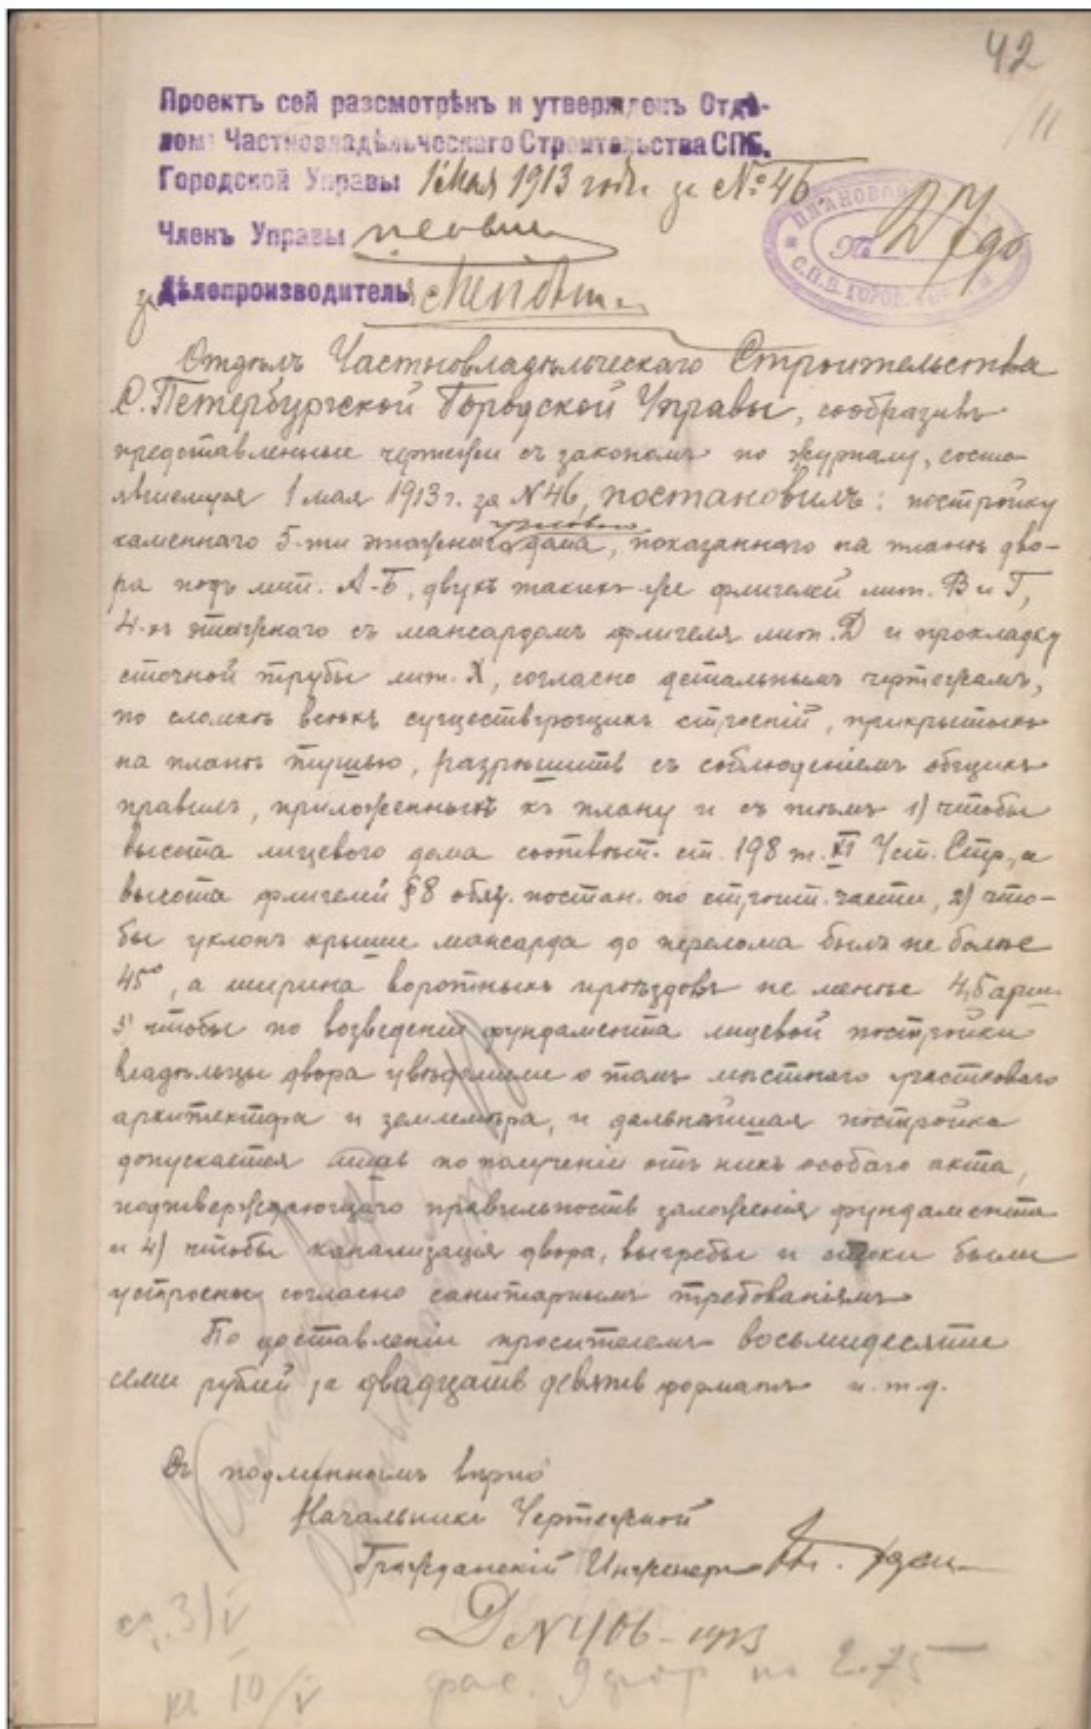 42
11
Проектъ сей разсмотрѣнъ и утвержденъ Отдѣ-
ломъ Частновладѣльческаго Строительства СПБ.
Городской Управы 1 мая 1913 года за № 46
Членъ Управы
за Дѣлопроизводитель
С.П.Б. ГОРОД.
Отдѣлъ Частновладѣльческаго Строительства
С. Петербургской Городской Управы, сообразивъ
представленные чертежи съ закономъ по журналу, состо-
явшемуся 1 мая 1913 г. за № 46, постановилъ: постройку
угловаго
каменнаго 5-ти этажнаго дома, показаннаго на планѣ дво-
ра подъ лит. А-Б, двухъ такихъ-же флигелей лит. В и Г,
4-хъ этажнаго съ мансардомъ флигеля лит. Д и прокладку
сточной трубы лит. Х, согласно детальнымъ чертежамъ,
по сломкѣ всѣхъ существующихъ строеній, прикрытыхъ
на планѣ тушью, разрѣшить съ соблюденіемъ общихъ
правилъ, приложенныхъ къ плану и съ тѣмъ 1) чтобы
высота лицевого дома соотвѣт. ст. 198 т. XII Уст. Стр., а
высота флигелей § 8 обяз. постан. по строит. части, 2) что-
бы уклонъ крыши мансарда до перелома былъ не болѣе
45°, а ширина воротныхъ проѣздовъ не менѣе 4,5 арш.
3) чтобы по возведеніи фундамента лицевой постройки
владѣльцы двора увѣдомили о томъ мѣстнаго участковаго
архитектора и землемѣра, и дальнѣйшая постройка
допускается лишь по полученіи отъ нихъ особаго акта,
подтверждающаго правильность заложенія фундамента
и 4) чтобы канализація двора, выгребы и стоки были
устроены согласно санитарнымъ требованіямъ
По доставленіи просителемъ восьмидесяти
семи рублей за двадцать девять форматъ и.т.д.
Съ подлиннымъ вѣрно
Начальникъ Чертежной
Гражданскій Инженеръ
Д № 1106 - 1913
ст. 31/V
кл 10/V
фас. 9 фор по 2.75